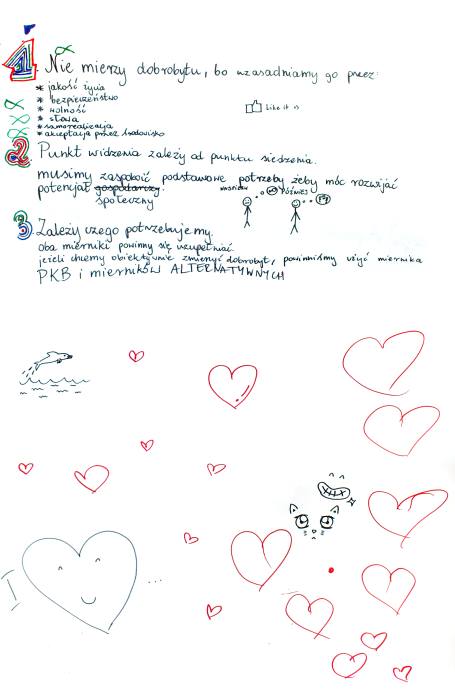 1. Nie mierzy dobrobytu, bo uzasadniamy go przez:
* jakość życia
* bezpieczeństwo
* wolność
* sława
* samorealizacja
* akceptacja przez środowisko
Like it is
2 Punkt widzenia zależy od punktu siedzenia.
musimy zaspokoić podstawowe potrzeby żeby móc rozwijać
potencjał gospodarczy
społeczny
3. Zależy czego potrzebujemy.
oba mierniki powinny się uzupełniać
jeżeli chcemy obiektywnie zmierzyć dobrobyt, powinniśmy użyć miernika
PKB i mierników ALTERNATYWNYCH
I ...